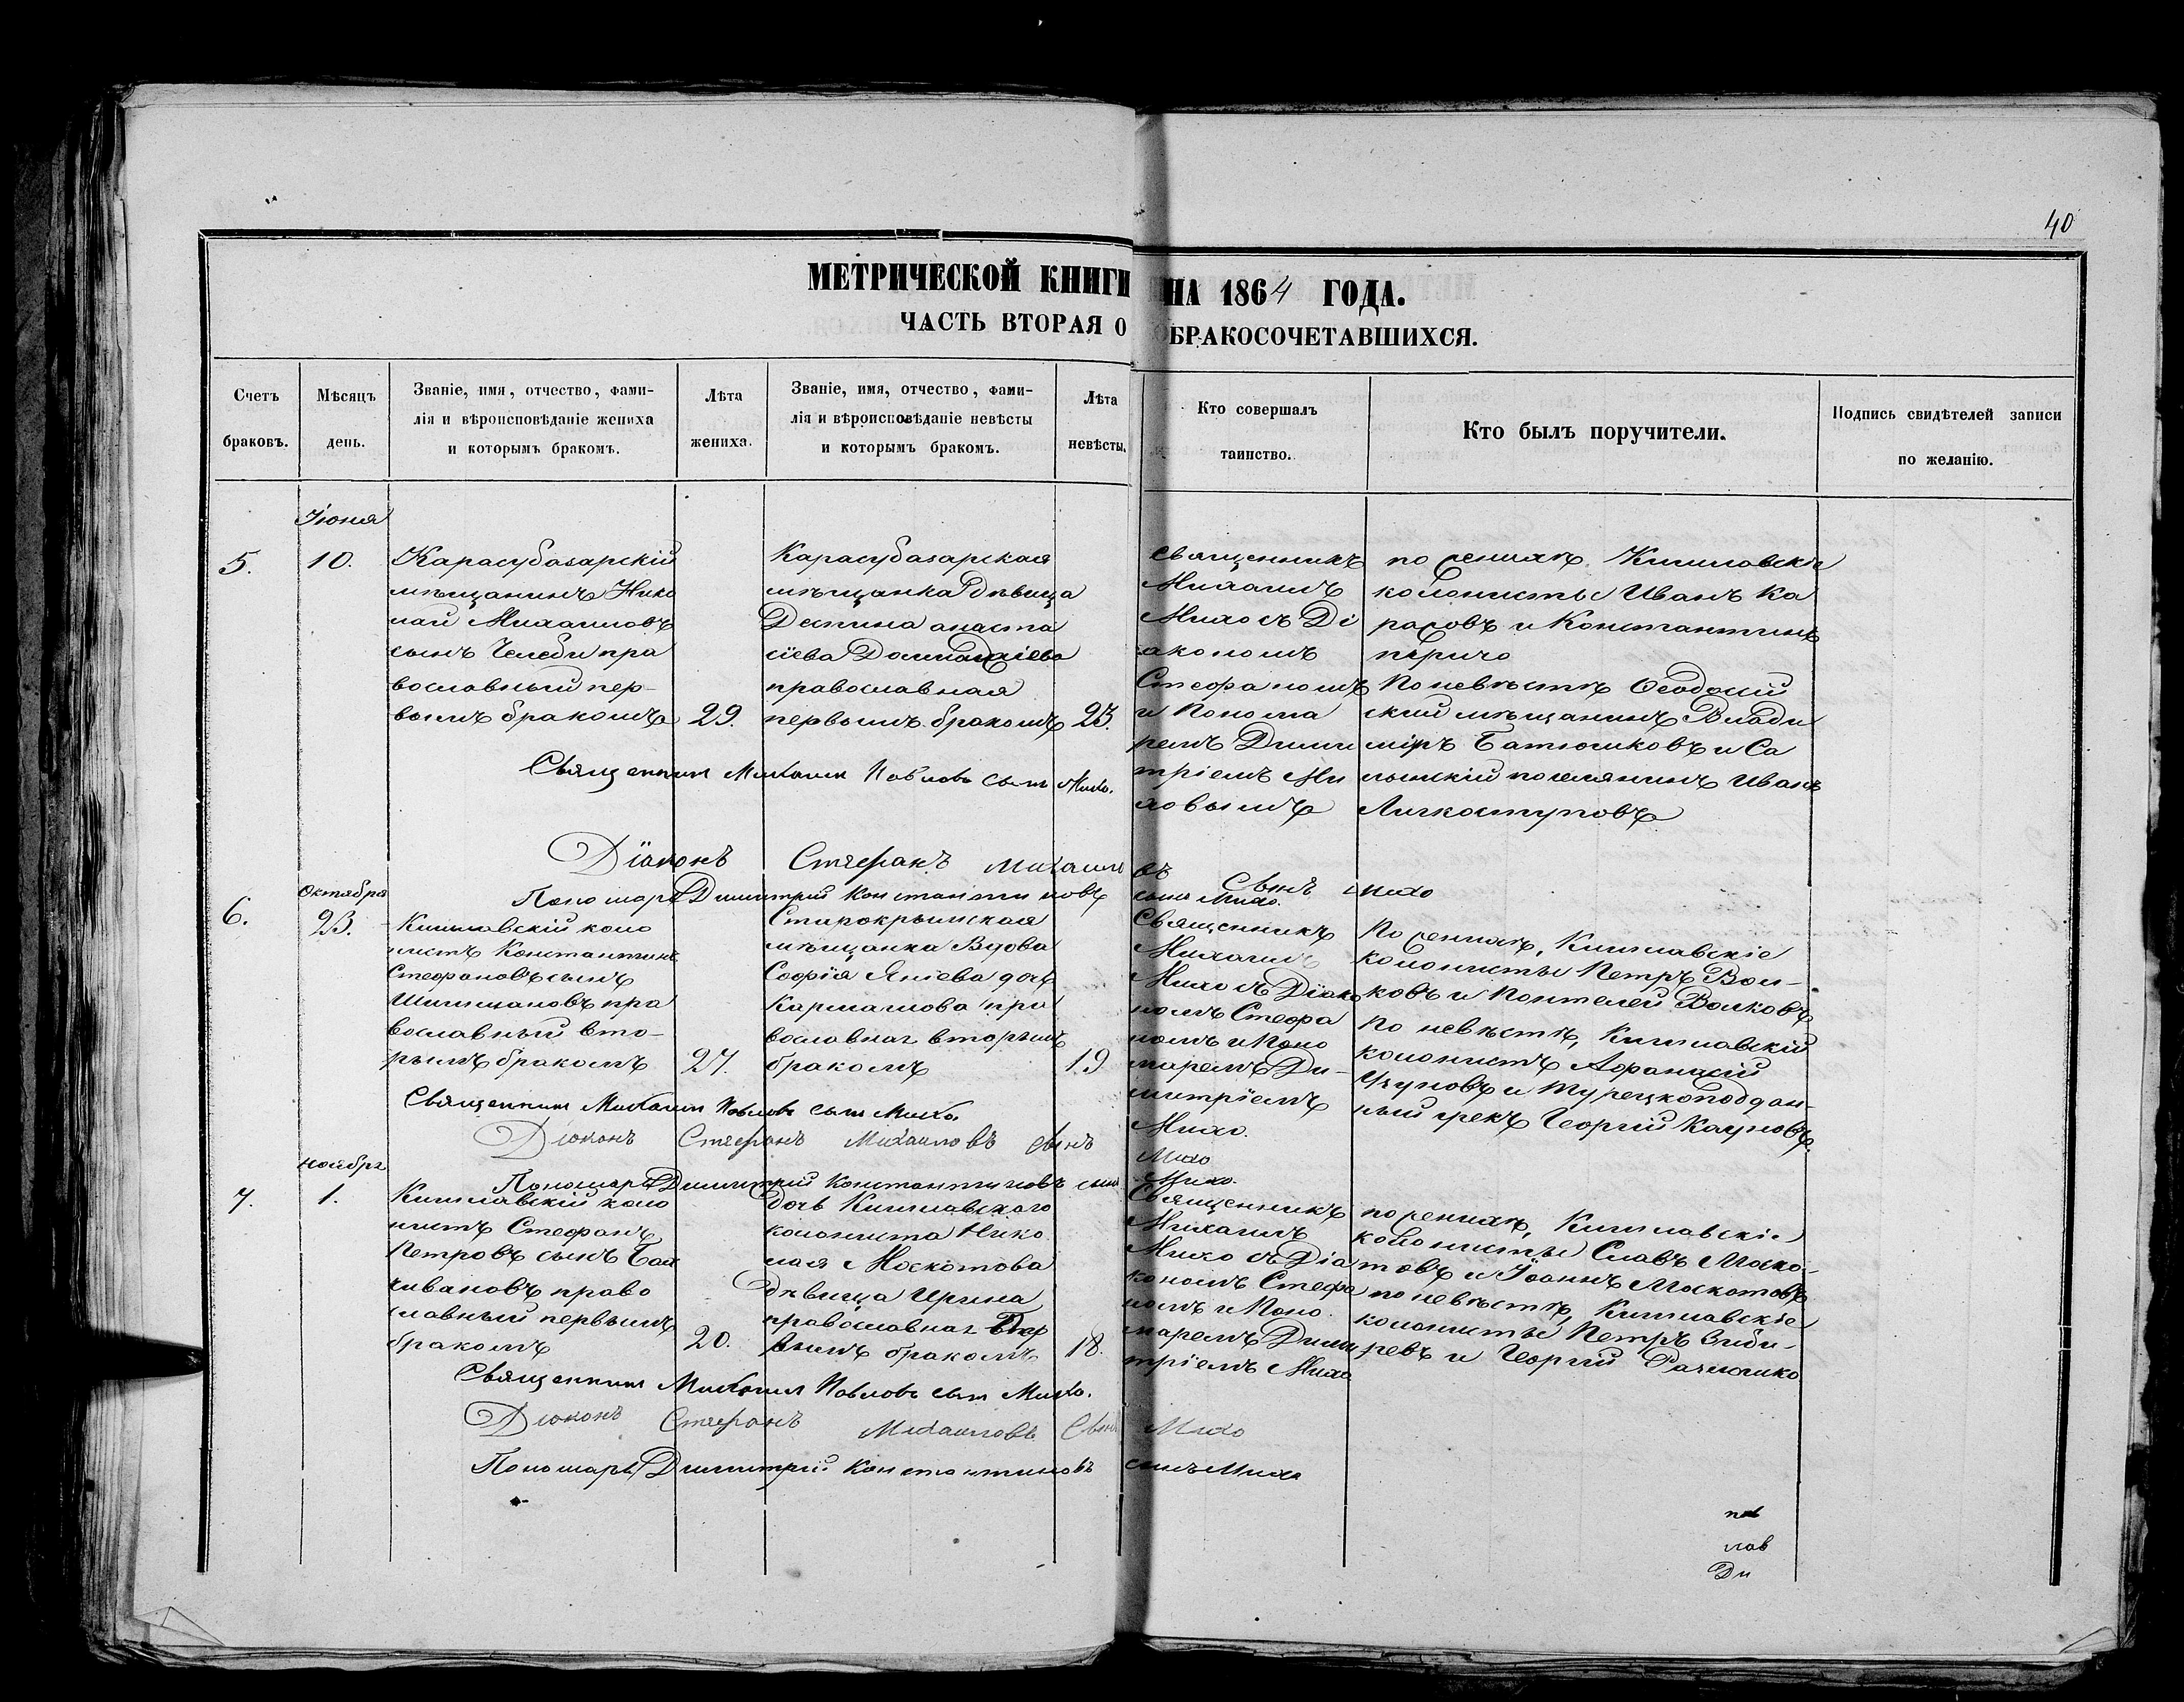 40
МЕТРИЧЕСКОЙ КНИГИ НА 1864 ГОДА.
ЧАСТЬ ВТОРАЯ О БРАКОСОЧЕТАВШИХСЯ.
Счетъ браковъ.
Мѣсяцъ день.
Званіе, имя, отчество, фами-
лія и вѣроисповѣданіе жениха
и которымъ бракомъ.
Лѣта жениха.
Званіе, имя, отчество, фами-
лія и вѣроисповѣданіе невѣсты
и которымъ бракомъ.
Лѣта невѣсты.
Кто совершалъ
таинство.
Кто былъ поручители.
Подпись свидѣтелей записи
по желанію.
5.
Іюня
10.
Карасубазарскій
мѣщанинъ Нико
лай Михаиловъ
сынъ Челеби пра
вославный пер-
вымъ бракомъ
29.
Карасубазарская
мѣщанка Дѣвица
Деспина анаста
сіева
православная
первымъ бракомъ
23.
священникъ
Михаилъ
Михо съ Ді
акономъ
Стефаномъ
и Понома
ремъ Дими
тріемъ Ми
ховымъ
по женихѣ Кишлавскіе
колонисты Иванъ Ка
расовъ и Константинъ
По невѣстѣ Ѳеодосій
скій мѣщанинъ Влади
міръ Батюшковъ и Са
лынскій поселянинъ Иванъ
Священникъ Михаилъ Павловъ сынъ Михо.
Діаконъ Стефанъ Михаиловъ сынъ Михо
Пономарь Димитрий Константиновъ сынъ Михо.
6.
Октября
23.
Кишлавскій коло
нистъ Константинъ
Стефановъ сынъ
Шишмановъ пра
вославный вто-
рымъ бракомъ
27.
Старокрымская
мѣщанка Вдова
Софія Яніева дочь
пра
вославная вторымъ
бракомъ
19
Священникъ
Михаилъ
Михо съ Діако
номъ Стефа
номъ и Поно
маремъ Ди-
митріемъ
Михо.
По женихѣ, Кишлавскіе
колонисты Петръ Вол-
ковъ и Пантелей Волковъ
По невѣстѣ, Кишлавскій
колонистъ Афанасій
Узуновъ и Турецкоподдан-
ный грекъ Георгій Кауновъ.
Священникъ Михаилъ Павловъ сынъ Михо.
Діаконъ Стефанъ Михаиловъ сынъ Михо
Пономарь Димитрий Константиновъ сынъ Михо.
7.
Ноября
1.
Кишлавскій коло
нистъ Стефанъ
Петровъ сынъ Бая
чивановъ право
славный первымъ
бракомъ
20.
Дочь Кишлавскаго
колониста Нико
лая Москотова
Дѣвица Ирина
православная Пер
вымъ бракомъ
18.
Священникъ
Михаилъ
Михо съ Діа
кономъ Стефа
номъ и Поно
маремъ Дими
тріемъ Михо
по женихѣ, Кишлавскіе
колонисты Славъ Моско-
товъ и Іоаннъ Москотовъ
по невѣстѣ, Кишлавскіе
колонисты Петръ Сиби-
ревъ и Георгій
Священникъ Михаилъ Павловъ сынъ Михо.
Діаконъ Стефанъ Михаиловъ сынъ Михо
Пономарь Димитрий Константиновъ сынъ Михо
лав
Ди